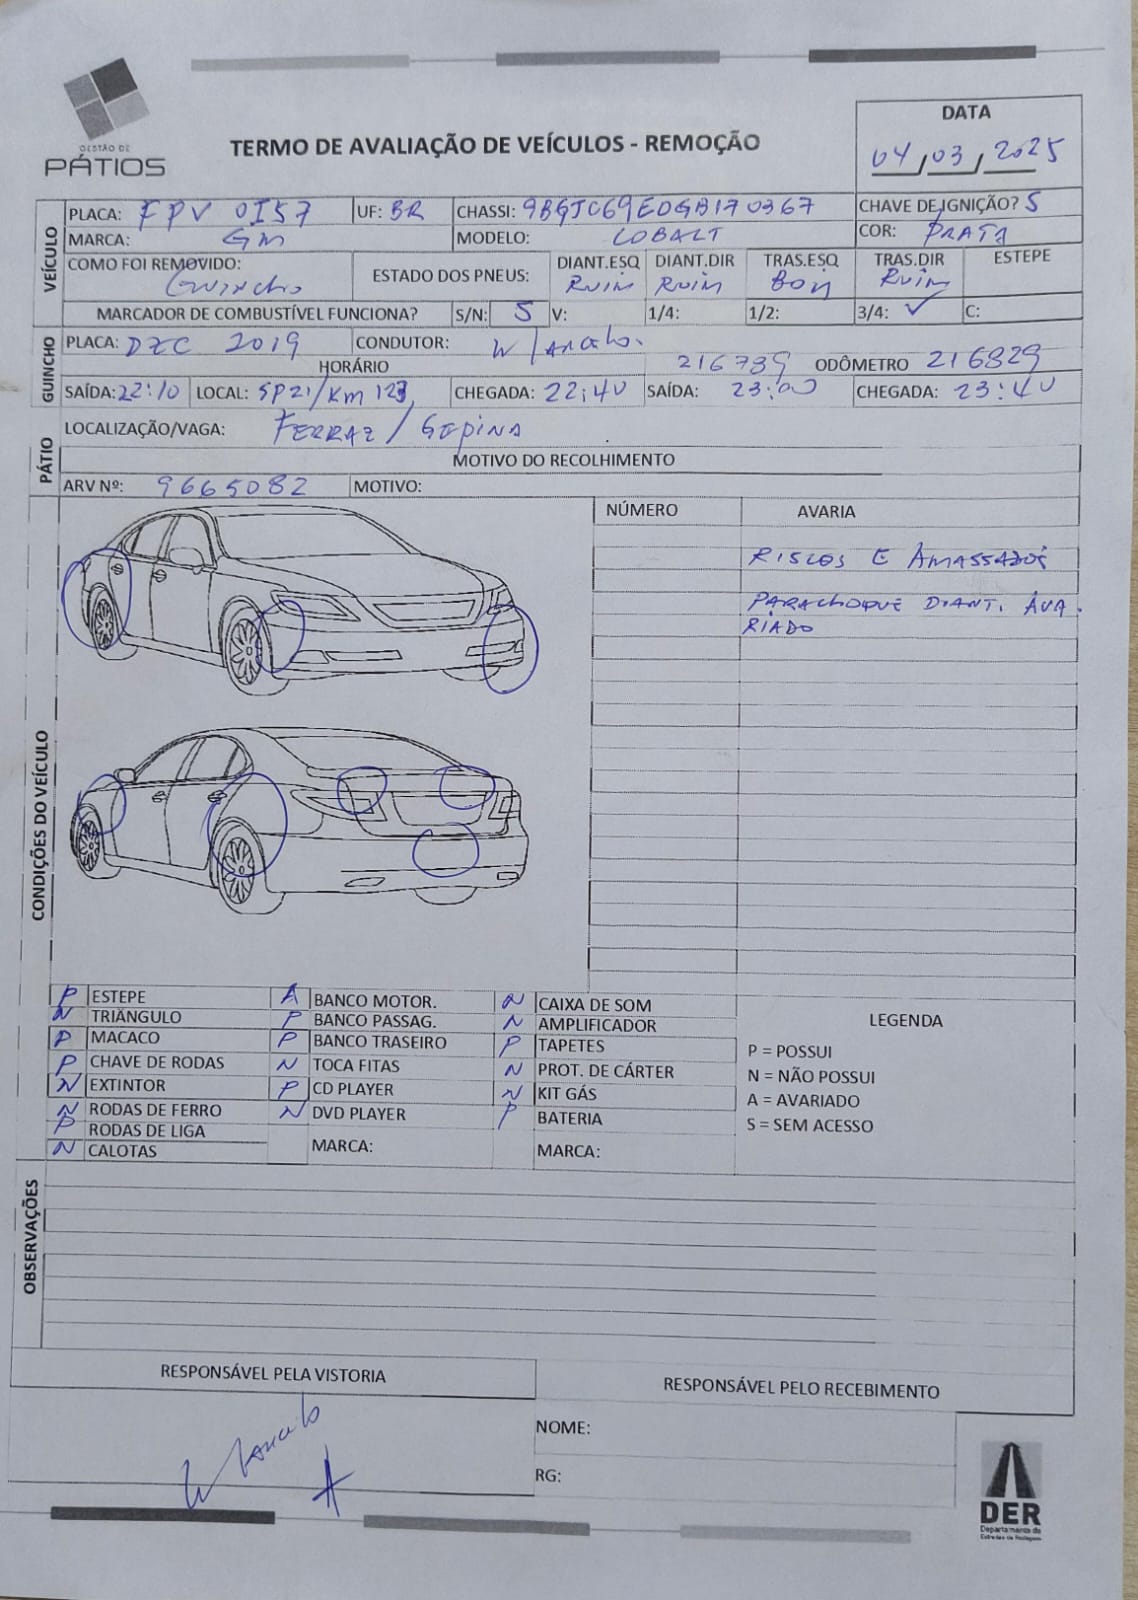 GESTÃO DE
PÁTIOS
TERMO DE AVALIAÇÃO DE VEÍCULOS - REMOÇÃO
DATA
04/03/2025
VEÍCULO
PLACA: FPV 0I57 UF: BR CHASSI: 9BGJC69E0GB170367 CHAVE DE IGNIÇÃO? S
MARCA: GM MODELO: COBALT COR: PRATA
COMO FOI REMOVIDO: Guincho ESTADO DOS PNEUS: DIANT.ESQ Ruim DIANT.DIR Ruim TRAS.ESQ Bom TRAS.DIR Ruim ESTEPE
MARCADOR DE COMBUSTÍVEL FUNCIONA? S/N: S V: 1/4: 1/2: 3/4: ✓ C:
GUINCHO
PLACA: DZC 2019 CONDUTOR:
HORÁRIO 216789 ODÔMETRO 216829
SAÍDA: 22:10 LOCAL: SP21/Km 123 CHEGADA: 22:40 SAÍDA: 23:00 CHEGADA: 23:40
PÁTIO
LOCALIZAÇÃO/VAGA: FERRAZ /
MOTIVO DO RECOLHIMENTO
ARV Nº: 9665082 MOTIVO:
CONDIÇÕES DO VEÍCULO
NÚMERO AVARIA
RISCOS E AMASSADOS
PARACHOQUE DIANT. AVA.
RIADO
P ESTEPE A BANCO MOTOR. N CAIXA DE SOM
N TRIÂNGULO P BANCO PASSAG. N AMPLIFICADOR
P MACACO P BANCO TRASEIRO P TAPETES
P CHAVE DE RODAS N TOCA FITAS N PROT. DE CÁRTER
N EXTINTOR P CD PLAYER N KIT GÁS
N RODAS DE FERRO N DVD PLAYER P BATERIA
P RODAS DE LIGA MARCA: MARCA:
N CALOTAS
LEGENDA
P = POSSUI
N = NÃO POSSUI
A = AVARIADO
S = SEM ACESSO
OBSERVAÇÕES
RESPONSÁVEL PELA VISTORIA
RESPONSÁVEL PELO RECEBIMENTO
NOME:
RG:
DER
Departamento de
Estradas de Rodagem